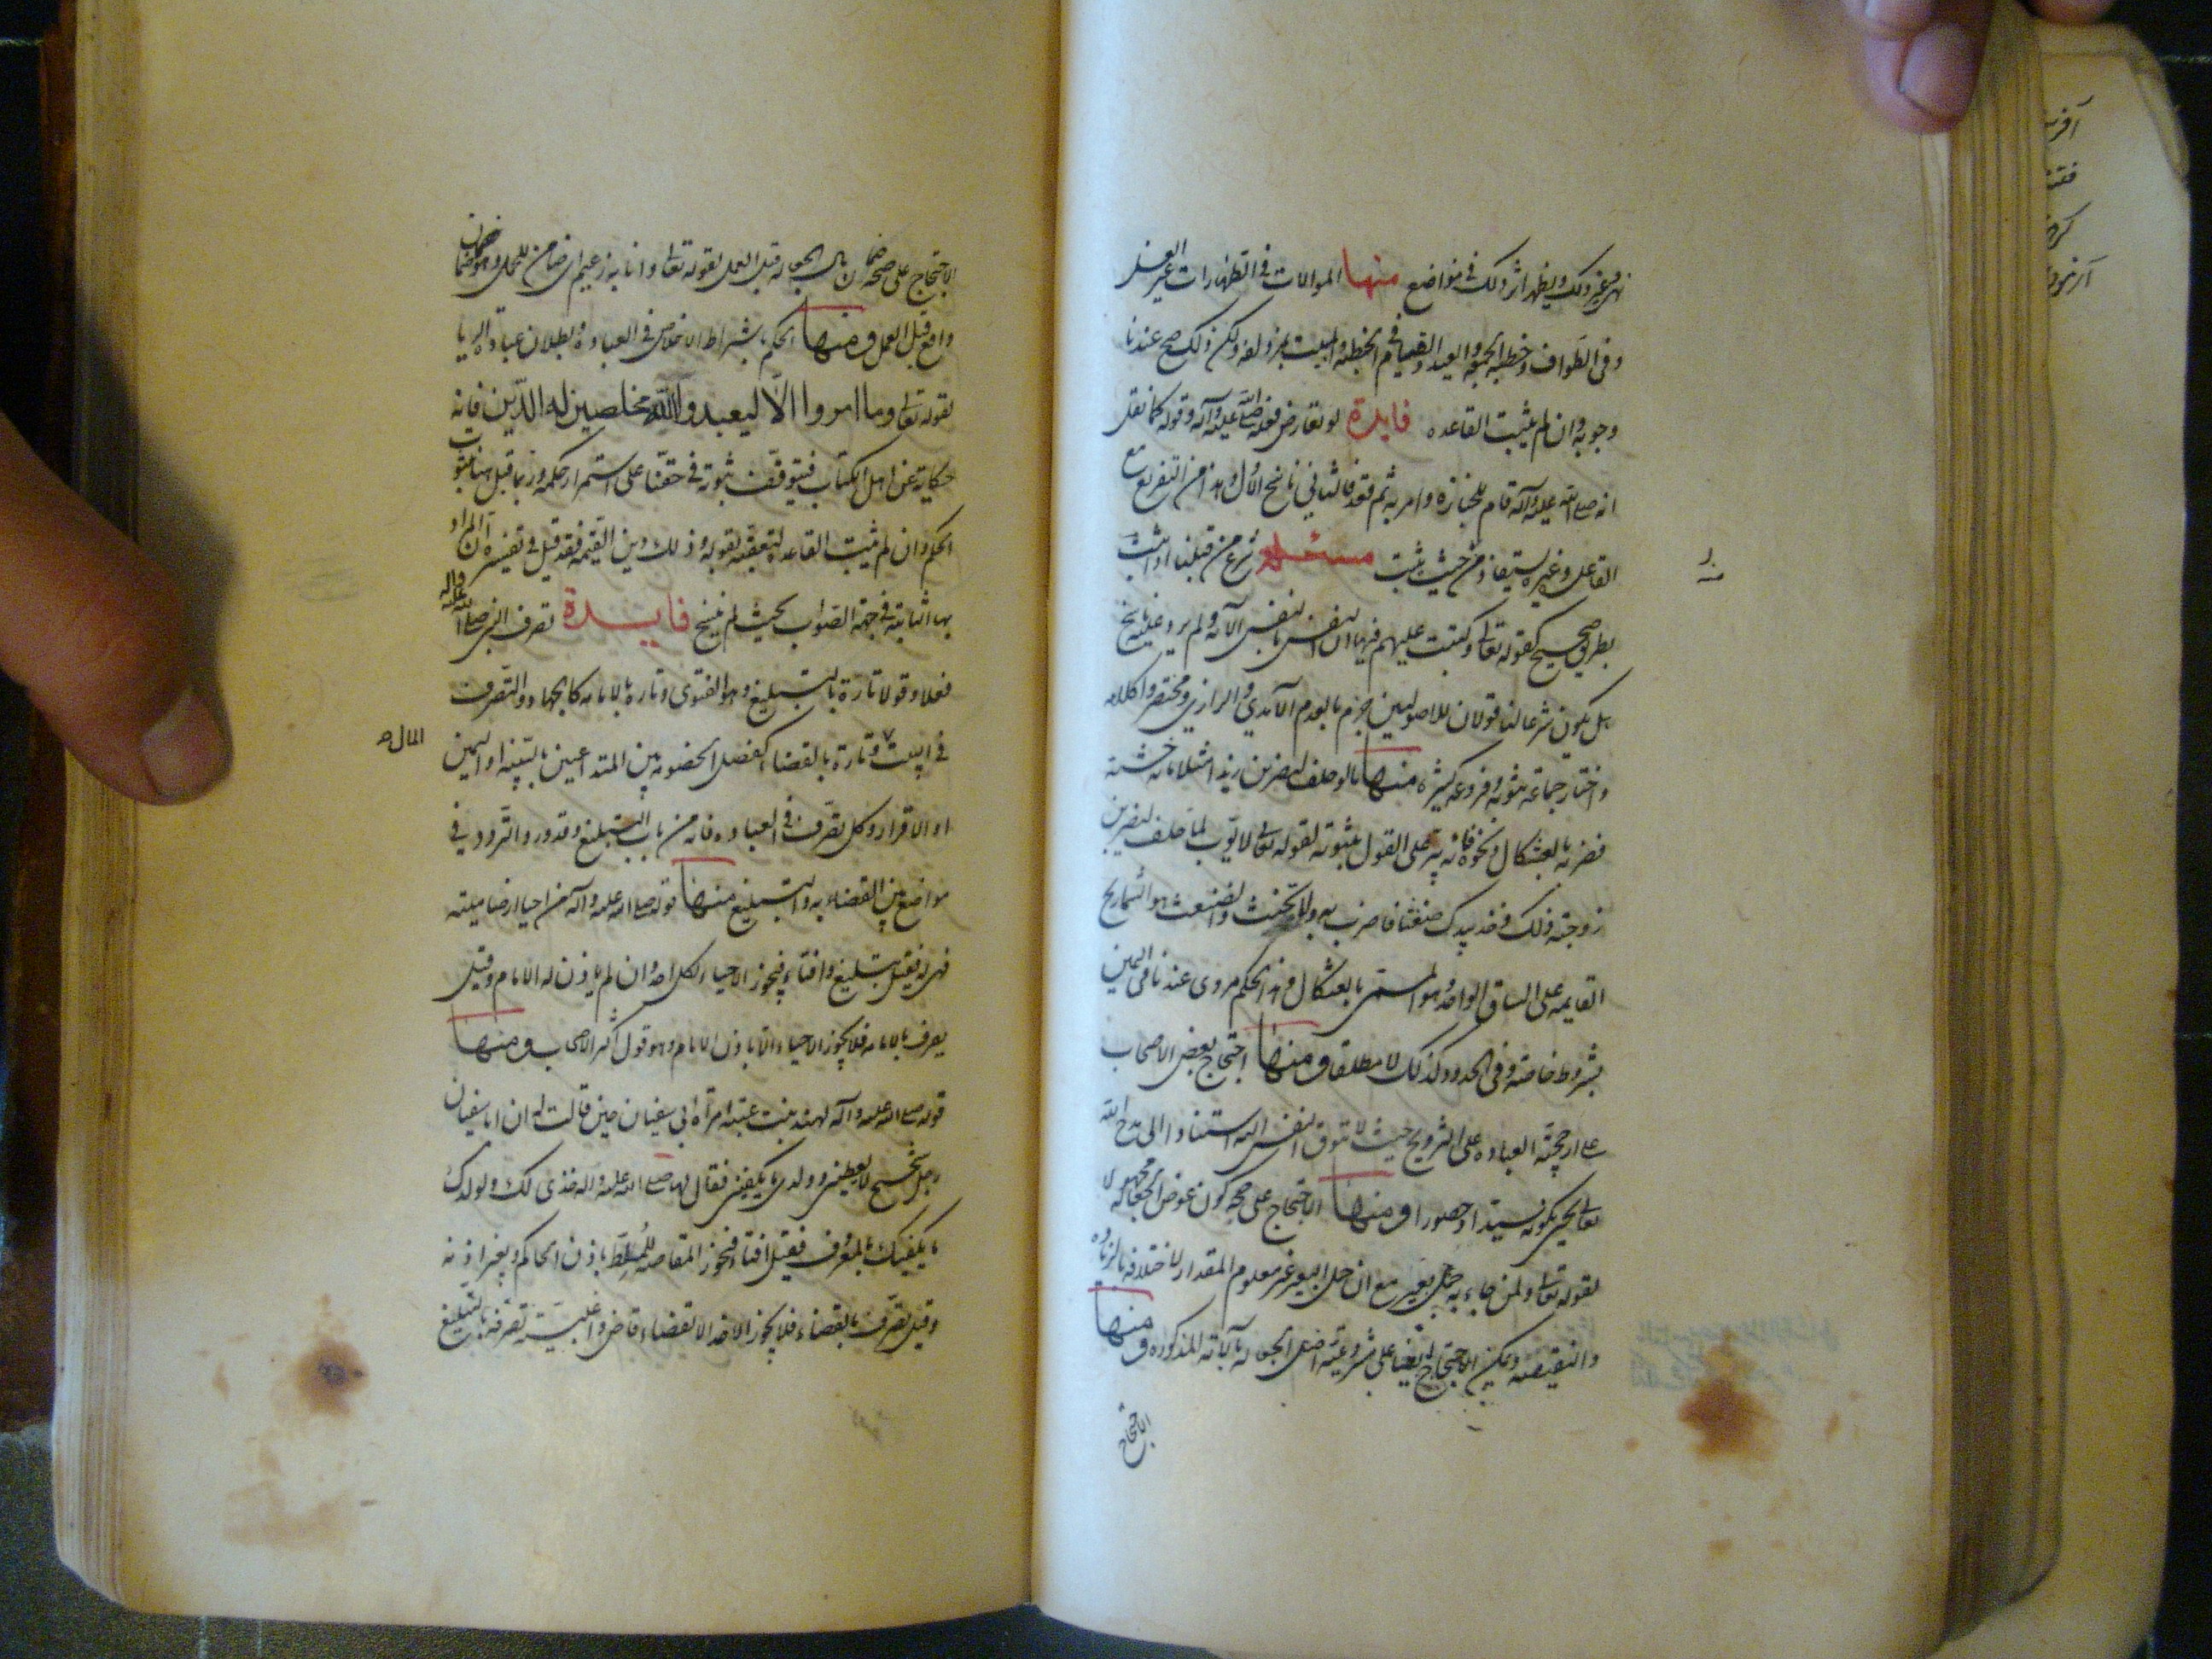 نهى وغير ذلك ويظهر اثر ذلك فى مواضع منها الموالات فى الطهارات غير الغسل
وفى الطواف وخطبة الجمعة والعيد والقيام فى الخطبة والمبيت بمزدلفه ولكن ذلك صح عندنا
وجوبه وان لم يثبت القاعده فايدة لو تعارض فعله صلى الله عليه وآله وقوله كما نقل
انه صلى الله عليه وآله قام للجنازه وامر به ثم قعد فالثانى ناسخ الاول وهذا من التفريع مع
القاعل وغيره يستفاد من حيث يثبت مسئله شرع من قبلنا اذا ثبت
بطريق صحيح كقوله تعالى وكتبنا عليهم فيها ان النفس بالنفس الآية ولم يرد عليه ناسخ
هل يكون شرعا لنا قولان للاصوليين جزم بالعدم الآمدى والرازى ومختصروا كلامه
واختار جماعة ثبوته وفروعه كثيرة منها ما لو حلف ليضربن زيدا مثلا مائة خشبة
فضربه بالعثكال ونحوه فانه يبر على القول بثبوته لقوله تعالى لايوب لما حلف ليضربن
زوجته ذلك وخذ بيدك ضغثا فاضرب به ولا تحنث والضغث هو الشماريخ
القايمه على الساق الواحد وهو المسمى بالعثكال وهذا الحكم مروى عندنا فى اليمين
بشروط خاصة وفى الحدود كذلك لا مطلقا ومنها احتجاج بعض الاصحاب
على ارجحية العباده على التزويج حيث لا تتوق النفس اليه استنادا الى مدح الله
تعالى يحيى بكونه سيدا وحصورا ومنها الاحتجاج على صحة كون عوض الجعالة مجهولا
لقوله تعالى ولمن جاء به حمل بعير مع ان حمل البعير غير معلوم المقدار لاختلافه بالزيادة
والنقيصه ويمكن الاحتجاج ايضا على مشروعية اصل الجعاله بالآية المذكوره ومنها
الاحتجاج
الاحتجاج على صحة ضمان مال الجعالة قبل العمل لقوله تعالى وانا به زعيم اى ضامن للحمل وهو ضمان
واقع قبل العمل ومنها الحكم باشتراط الاخلاص فى العبادة وبطلان عبادة الريا
لقوله تعالى وما امروا الا ليعبدوا الله مخلصين له الدين فانه
حكاية عن اهل الكتاب فيتوقف ثبوته فى حقنا على استمرار حكمه وربما قيل هنا بثبوت
الحكم وان لم تثبت القاعدة لتعقبه بقوله وذلك دين القيمه فقد قيل فى تفسيره ان المراد
بها الثابتة فى جهة الصواب بحيث لم ينسخ فايدة تصرف النبى صلى الله عليه وآله
فعلا وقولا تارة بالتبليغ وهو الفتوى وتارة بالامامه كالجهاد والتصرف
فى بيت وتارة بالقضاء كفصل الخصومة بين المتداعيين بالبينة او اليمين
المال صح
او الاقرار وكل تصرف فى العباده فانه من باب التبليغ وقد ورد التردد فى
مواضع بين القضاء به والتبليغ منها قوله صلى الله عليه وآله من احيا ارضا ميتة
فهى له فقيل تبليغ وافتاء فيجوز الاحياء لكل احد وان لم ياذن له الامام وقيل
تصرف بالامامه فلا يجوز الاحياء الا باذن الامام وهو قول اكثر الاصحاب ومنها
قوله صلى الله عليه وآله لهند بنت عتبة امرأة ابى سفيان حين قالت له ان ابا سفيان
رجل شحيح لا يعطينى وولدى ما يكفينى فقال لها صلى الله عليه وآله خذى لك ولولدك
ما يكفيك بالمعروف فقيل افتاء فيجوز المقاصة للمسلط باذن الحاكم وبغير اذنه
وقيل تصرف بالقضاء فلا يجوز الاخذ الا بقضاء قاض واغلبية تصرفه بالتبليغ